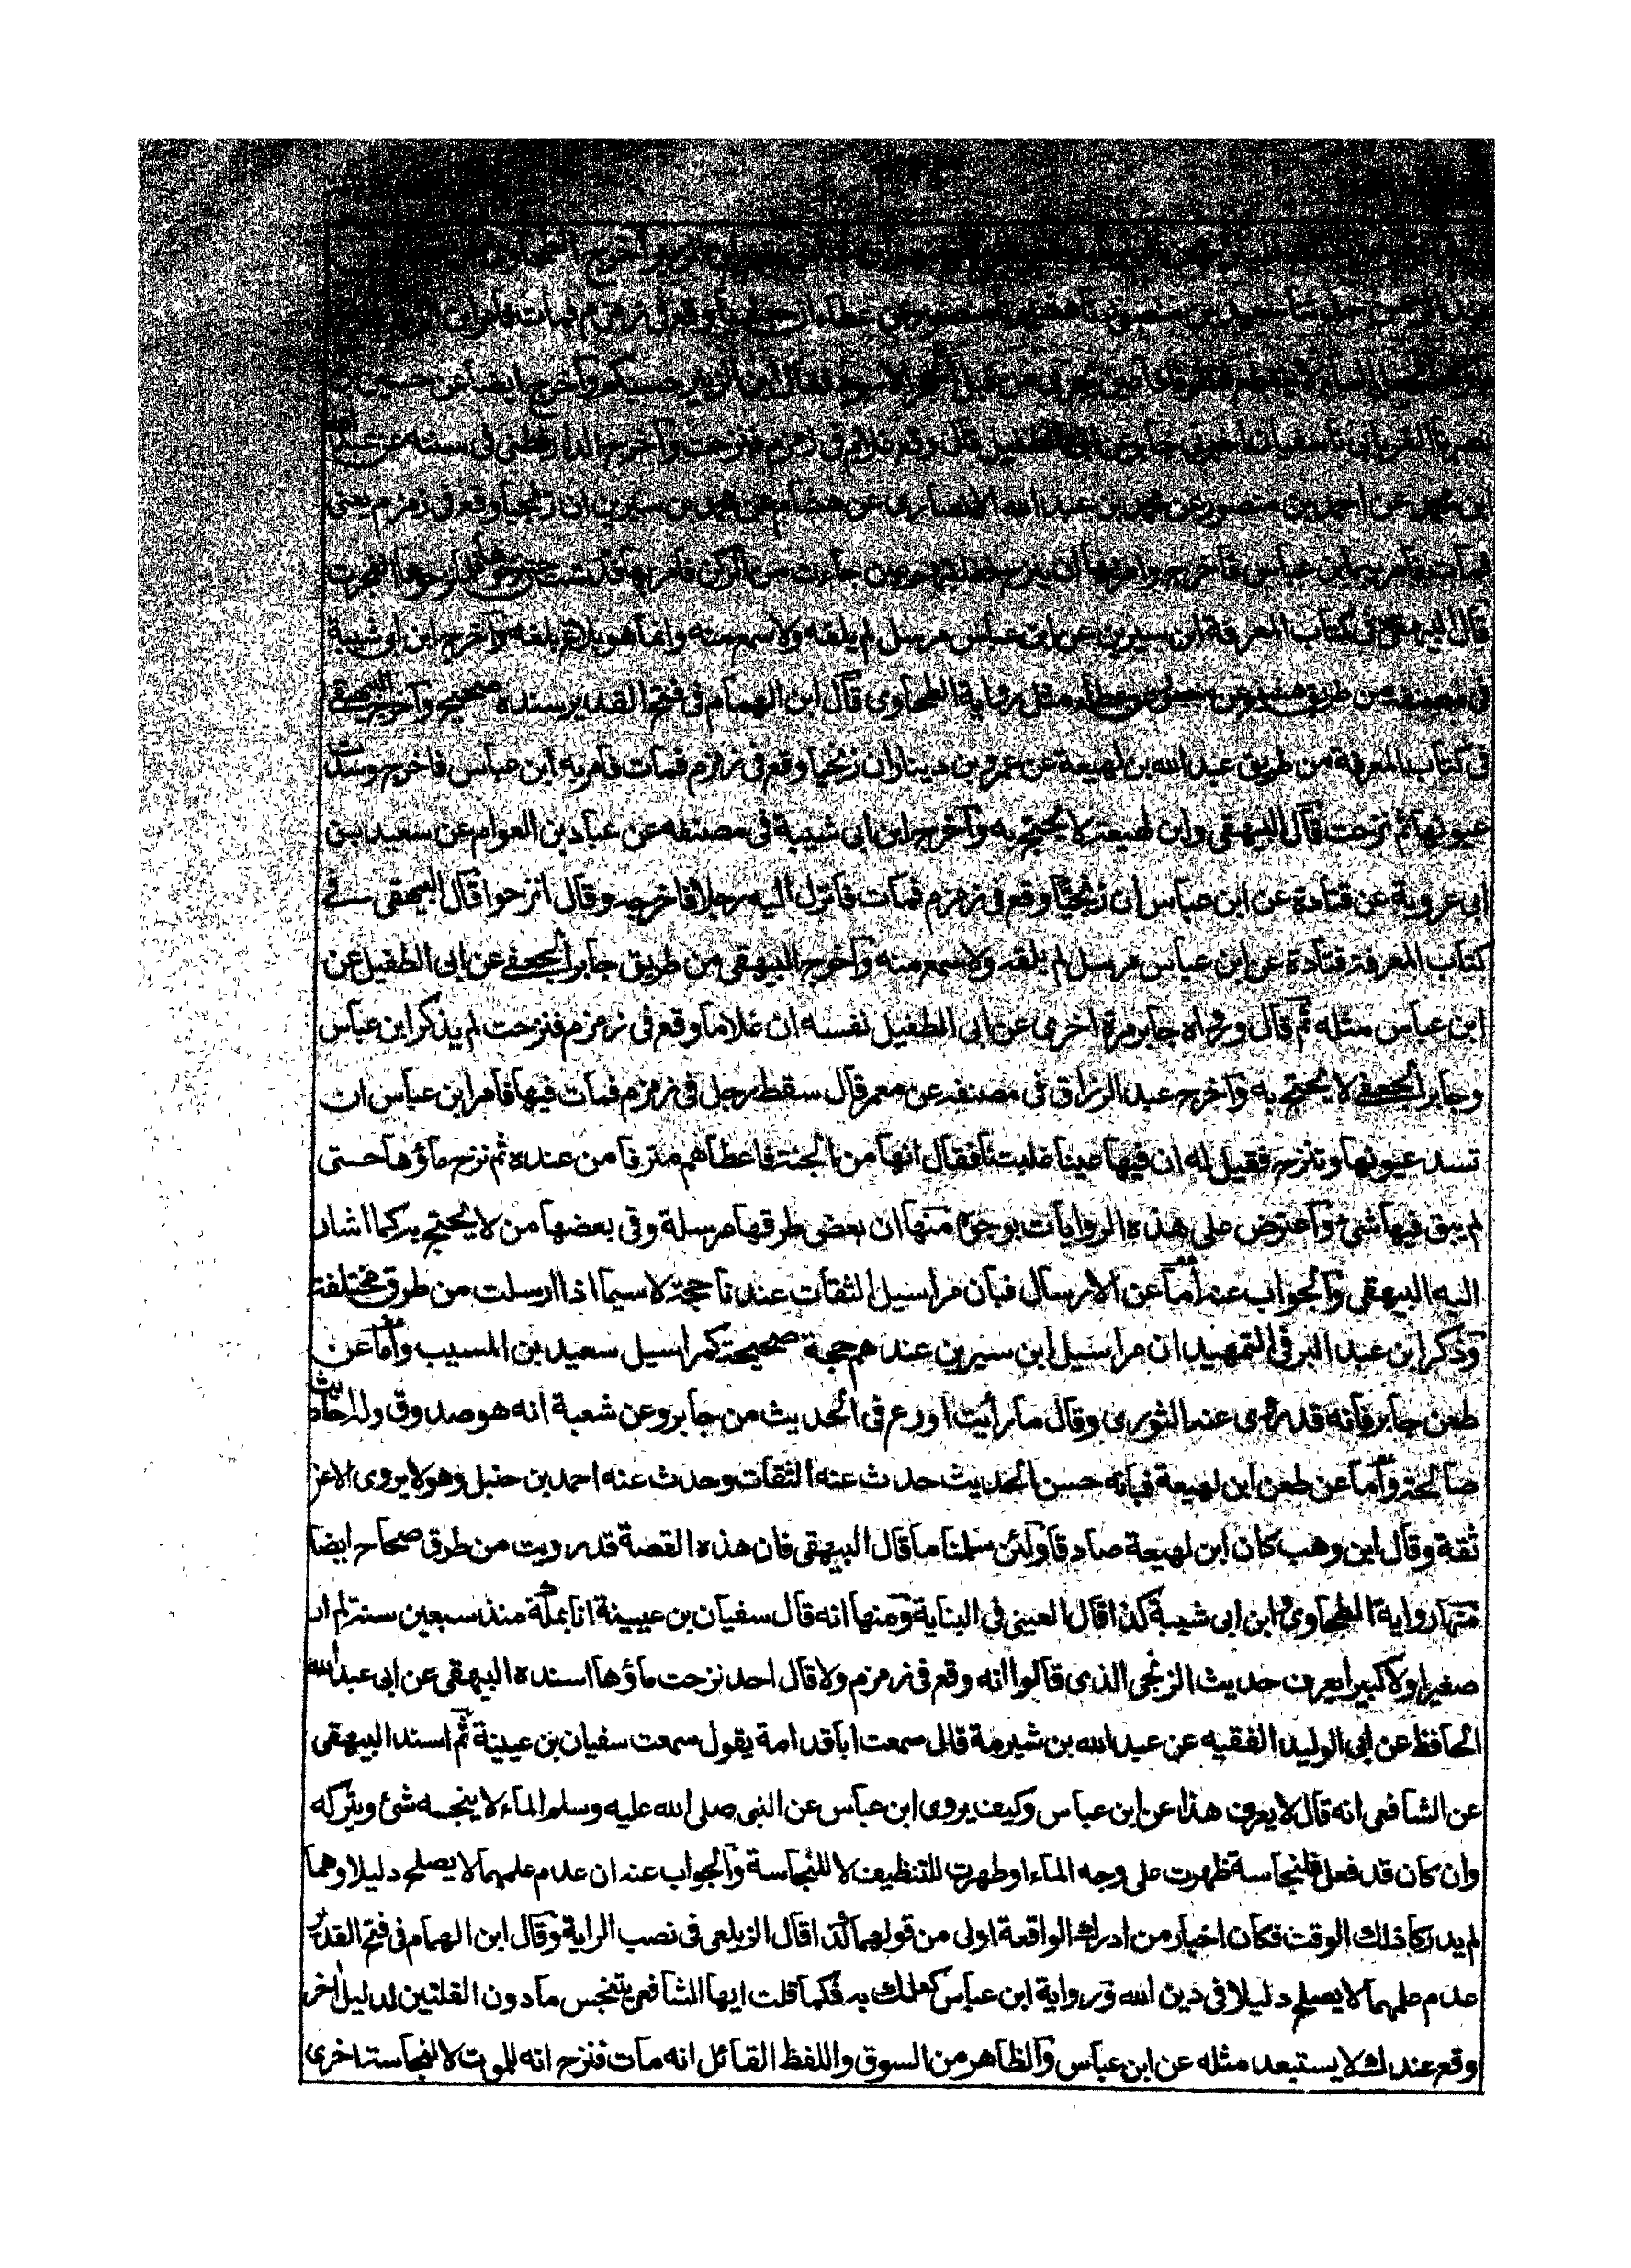 وأخرج الطحاوى
وقع فى زمزم فمات فأمر ابن
الماء لا ينقطع فنظر فاذا عين تجرى من قبل الحجر الاسود فقال ابن الزبير حسبكم وأخرج ايضا عن حسين بن
نصر نا الفريابى نا سفيان اخبرنى جابر عن ابى الطفيل قال وقع غلام فى زمزم فنزحت وأخرج الدارقطنى فى سننه عن عبد الله
ابن محمد عن احمد بن منصور عن محمد بن عبد الله الانصارى عن هشام عن محمد بن سيرين ان زنجيا وقع فى زمزم يعنى
فمات فأمر به ابن عباس فأخرج وامر بها ان تنزح فغلبتهم عين جاءت من الركن فامر بها فدست حتى نزحوها فلما نزحوها انفجرت
قال البيهقى فى كتاب المعرفة ابن سيرين عن ابن عباس مرسل لم يلقه ولا سمع منه وانما هو بلاغ بلغه وأخرج ابن ابى شيبة
فى مصنفه من طريق هشيم عن منصور عن عطاء مثل رواية الطحاوى قال ابن الهمام فى فتح القدير سنده صحيح وأخرج البيهقى
فى كتاب المعرفة من طريق عبد الله بن لهيعة عن عمرو بن دينار ان زنجيا وقع فى زمزم فمات فامر به ابن عباس فاخرج وسدت
عيونها ثم نزحت قال البيهقى وابن لهيعة لا يحتج به وأخرج ابن ابى شيبة فى مصنفه عن عباد بن العوام عن سعيد بن
ابى عروبة عن قتادة عن ابن عباس ان زنجيا وقع فى زمزم فمات فانزل اليه رجلا فاخرجه وقال انزحوا قال البيهقى فى
كتاب المعرفة قتادة عن ابن عباس مرسل لم يلقه ولا سمع منه وأخرج البيهقى من طريق جابر الجعفى عن ابى الطفيل عن
ابن عباس مثله ثم قال ورواه جابر مرة اخرى عن ابى الطفيل نفسه ان غلاما وقع فى زمزم فنزحت لم يذكر ابن عباس
وجابر الجعفى لا يحتج به وأخرج عبد الرزاق فى مصنفه عن معمر قال سقط رجل فى زمزم فمات فيها فامر ابن عباس ان
تسد عيونها وتنزح فقيل له ان فيها عينا غلبتنا فقال انها من الجنة فاعطاهم مترفا من عنده ثم نزح ماؤها حتى
لم يبق فيها شئ وأعترض على هذه الروايات بوجوه منها ان بعض طرقها مرسلة وفى بعضها من لا يحتج به كما اشار
اليه البيهقى والجواب عنه أما عن الارسال فبان مراسيل الثقات عندنا حجة لا سيما اذا ارسلت من طرق مختلفة
وذكر ابن عبد البر فى التمهيد ان مراسيل ابن سيرين عندهم حجة صحيحة كمراسيل سعيد بن المسيب وأما عن
طعن جابر فانه قد روى عنه الثورى وقال ما رأيت اورع فى الحديث من جابر وعن شعبة انه هو صدوق وله احاديث
صالحة وأما عن طعن ابن لهيعة فبانه حسن الحديث حدث عنه الثقات وحدث عنه احمد بن حنبل وهو لا يروى الا عن
ثقة وقال ابن وهب كان ابن لهيعة صادقا ولئن سلمنا ما قال البيهقى فان هذه القصة قد رويت من طرق صحاح ايضا
منها رواية الطحاوى وابن ابى شيبة كذا قال العينى فى البناية ومنها انه قال سفيان بن عيينة انا بمكة منذ سبعين سنة لم ار
صغيرا ولا كبيرا يعرف حديث الزنجى الذى قالوا انه وقع فى زمزم ولا قال احد نزحت ماؤها اسنده البيهقى عن ابى عبد الله
الحافظ عن ابى الوليد الفقيه عن عبد الله بن شيرمة قال سمعت ابا قدامة يقول سمعت سفيان بن عيينة ثم اسند البيهقى
عن الشافعى انه قال لا يعرف هذا عن ابن عباس وكيف يروى ابن عباس عن النبى صلى الله عليه وسلم الماء لا ينجسه شئ ويتركه
وان كان قد فعل فلنجاسة ظهرت على وجه الماء او طهرت للتنظيف لا للنجاسة والجواب عنه ان عدم علمهما لا يصلح دليلا وهما
لم يدركا ذلك الوقت فكان اخبار من ادرك الواقعة اولى من قولهما كذا قال الزيلعى فى نصب الراية وقال ابن الهمام فى فتح القدير
عدم علمهما لا يصلح دليلا فى دين الله ورواية ابن عباس كعلمك به فكما قلت ايها الشافعى يتنجس ما دون القلتين لدليل اخر
وقع عندك لا يستبعد مثله عن ابن عباس والظاهر من السوق واللفظ القائل انه مات فنزح انه للموت لا لنجاسة اخرى